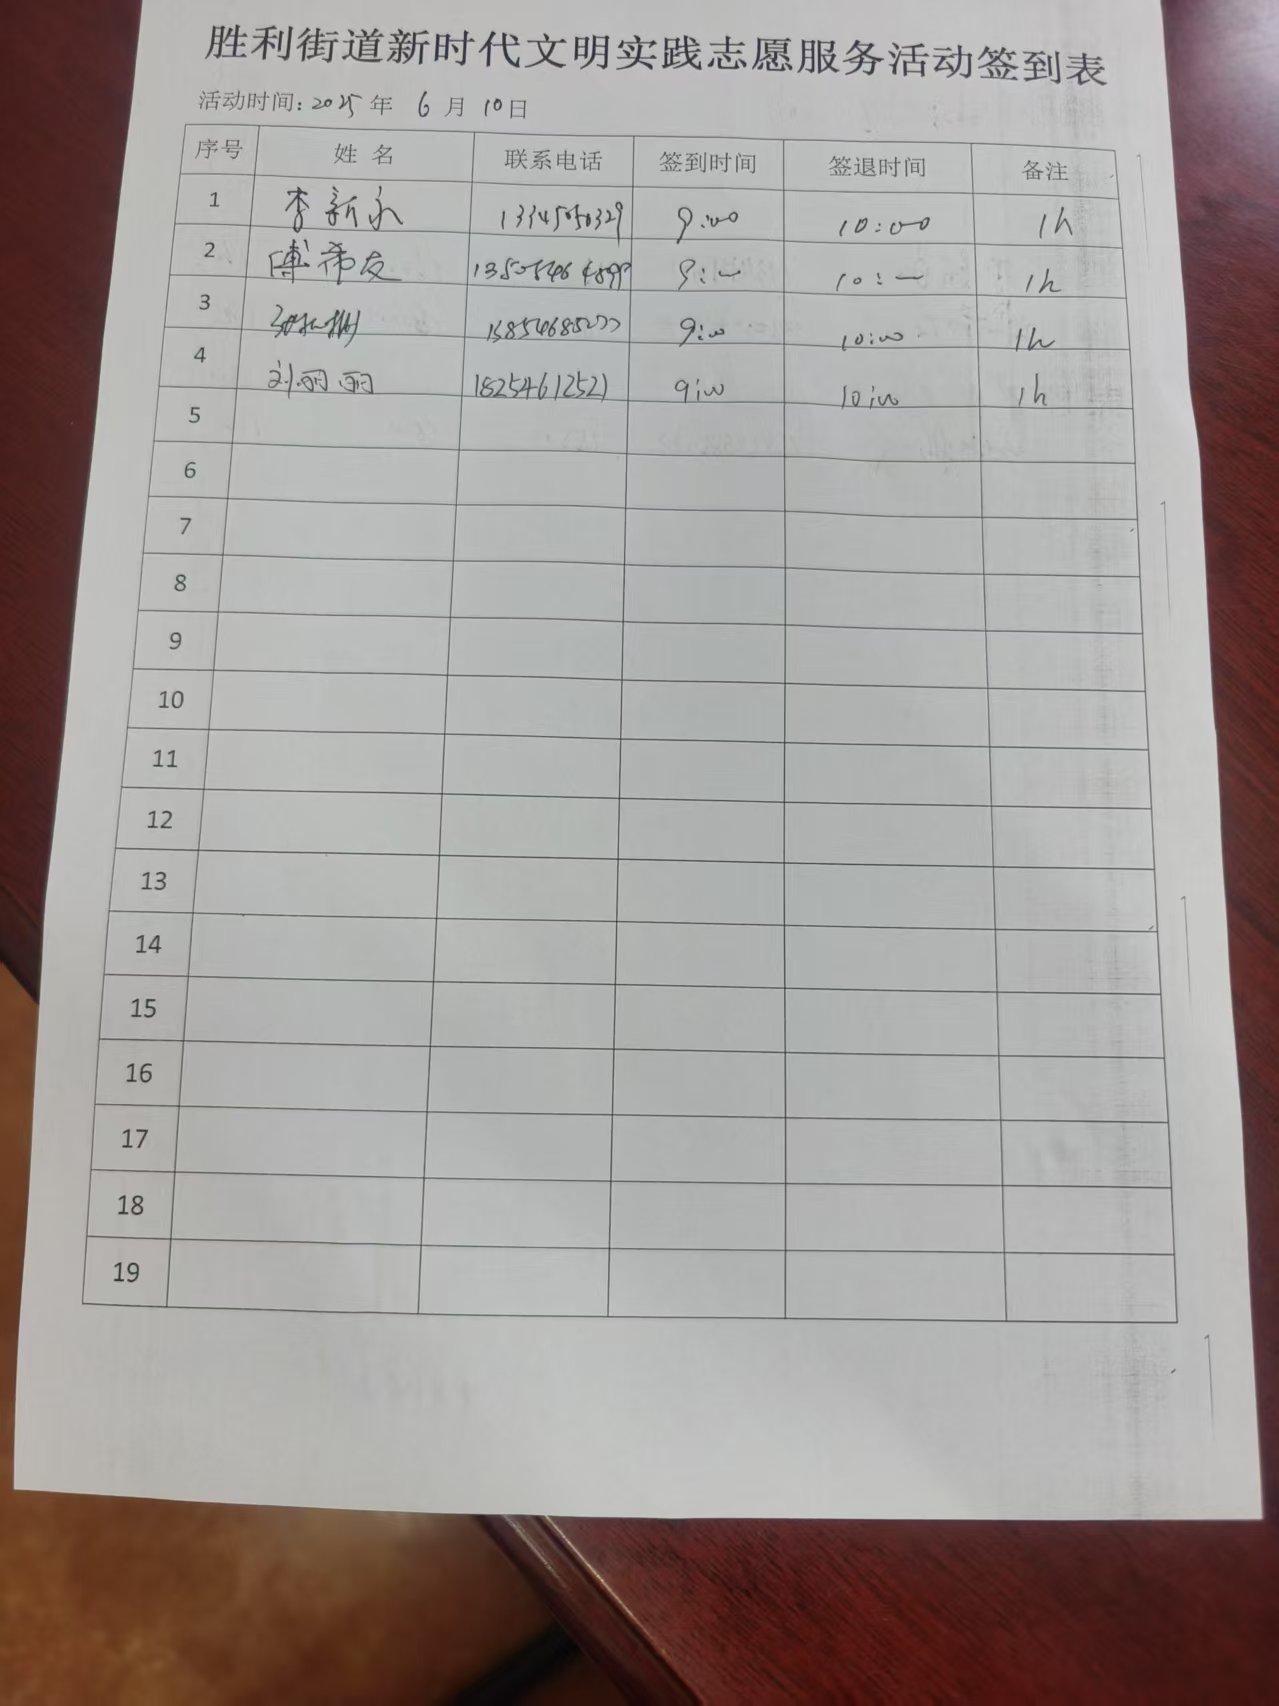 胜利街道新时代文明实践志愿服务活动签到表
活动时间：2025年 6月 10日
序号 姓 名 联系电话 签到时间 签退时间 备注
1 李新永 13345050329 9:00 10:00 1h
2 傅希友 9:— 10:— 1h
3 9:00 10:00 1h
4 刘丽丽 18254612521 9:00 10:00 1h
5
6
7
8
9
10
11
12
13
14
15
16
17
18
19